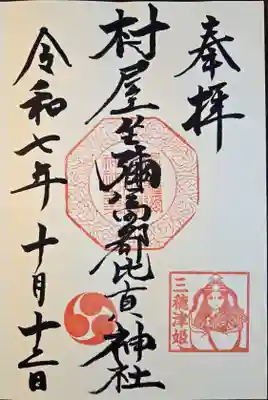 奉拝
村屋坐彌冨都比賣神社
三穂津姫
令和七年 十月十三日